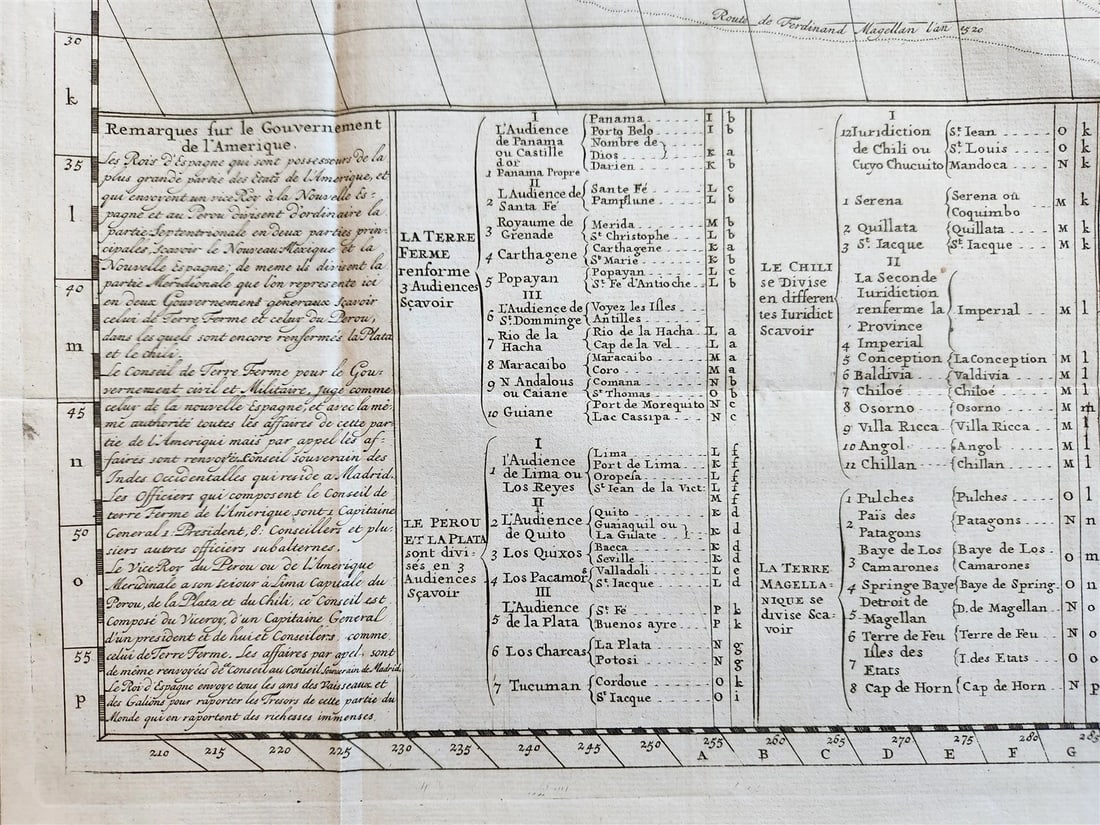 Route de Ferdinand Magellan l'an 1520
30
k
35
l
40
m
45
n
50
o
55
p
Remarques sur le Gouvernement
de l'Amerique.
Les Rois d'Espagne qui sont possesseurs de la
plus grande partie des Etats de l'Amerique, et
qui envoyent un vice Roy à la Nouvelle Es-
pagne et au Perou divisent d'ordinaire la
partie Septentrionale en deux parties prin-
cipales, sçavoir le Nouveau Mexique et la
Nouvelle Espagne; de meme ils divisent la
partie Meridionale que l'on represente ici
en deux Gouvernemens generaux sçavoir
celui de Terre Ferme et celui du Perou,
dans les quels sont encore renfermés la Plata
et le chili.
Le Conseil de Terre Ferme pour le Gou-
vernement civil et Militaire, juge comme
celui de la nouvelle Espagne, et avec la mê-
me authorité toutes les affaires de cette par-
tie de l'Ameriqui mais par appel les af-
faires sont renvoyés Conseil souverain des
Indes Occidentalles qui reside a Madrid.
Les Officiers qui composent le Conseil de
terre Ferme de l'Amerique sont 1 Capitaine
General 1. President, 8. Conseillers et plu-
siers autres officiers subalternes.
Le Vice Roy du Perou ou de l'Amerique
Meridinale a son sejour à Lima Capitale du
Perou, de la Plata et du Chili, ce Conseil est
composé du Viceroy, d'un Capitaine General
d'un president et de hui et Conseilers comme
celui de Terre Ferme. Les affaires par apel sont
de même renvoyées de ce Conseil au Conseil souverain de Madrid.
Le Roi d'Espagne envoye tous les ans des Vaisseaux et
des Galions pour raporter les Tresors de cette partie du
Monde qui en raportent des richesses immenses.
LA TERRE
FERME
renforme
3 Audiences
Sçavoir
I
1 L'Audience
de Panama
ou Castille
d'or
Panama I b
Porto Belo I b
Nombre de
Dios K a
Darien K b
1 Panama Propre
II
2 L'Audience de
Santa Fé
Sante Fé L c
Pamplune L b
3 Royaume de
Grenade
Merida M b
St. Christophe L b
4 Carthagene
Carthagene K a
Ste Marie K b
5 Popayan
Popayan L c
St. Fe d'Antioche L b
III
6 L'Audience de
St. Domminge
Voyez les Isles
Antilles
7 Rio de la
Hacha
Rio de la Hacha L a
Cap de la Vel L a
8 Maracaibo
Maracaibo M a
Coro M a
9 N Andalous
ou Caiane
Comana N b
St Thomas O b
10 Guiane
Port de Morequito N c
Lac Cassipa N c
LE PEROU
ET LA PLATA
sont divi-
sés en 3
Audiences
Sçavoir
I
1 l'Audience
de Lima ou
Los Reyes
Lima L f
Port de Lima K f
Oropeïa L f
St Iean de la Vict: L f
M f
II
2 L'Audience
de Quito
Quito K d
Guaiaquil ou
La Gulate K d
3 Los Quixos
Bacca K d
Seville K d
4 Los Pacamors
Valladoli L e
St. Iacque L d
III
5 L'Audience
de la Plata
St. Fé P k
Buenos ayre P k
6 Los Charcas
La Plata N g
Potosi N g
7 Tucuman
Cordoue O k
St Iacque O i
LE CHILI
se Divise
en differen
tes Iuridict
Sçavoir
I
12 Iuridiction
de Chili ou
Cuyo Chucuito
St. Iean O k
St. Louis O k
Mandoca N k
1 Serena
Serena où
Coquimbo M k
2 Quillata Quillata M k
3 St. Iacque St. Iacque M k
II
La Seconde
Iuridiction
renferme la
Province
4 Imperial
Imperial M l
5 Conception La Conception M l
6 Baldivia Valdivia M l
7 Chiloé Chiloé M l
8 Osorno Osorno M m
9 Villa Ricca Villa Ricca M l
10 Angol Angol M l
11 Chillan Chillan M l
LA TERRE
MAGELLA-
NIQUE se
divise Sca-
voir
1 Pulches Pulches O l
2 Païs des
Patagons
Patagons N n
3 Baye de Los
Camarones
Baye de Los
Camarones O m
4 Springe Baye Baye de Spring O n
5 Detroit de
Magellan
D. de Magellan N o
6 Terre de Feu Terre de Feu N o
7 Isles des
Etats
I. des Etats O o
8 Cap de Horn Cap de Horn N p
210 215 220 225 230 235 240 245 250 255 260 265 270 275 280 285
A B C D E F G